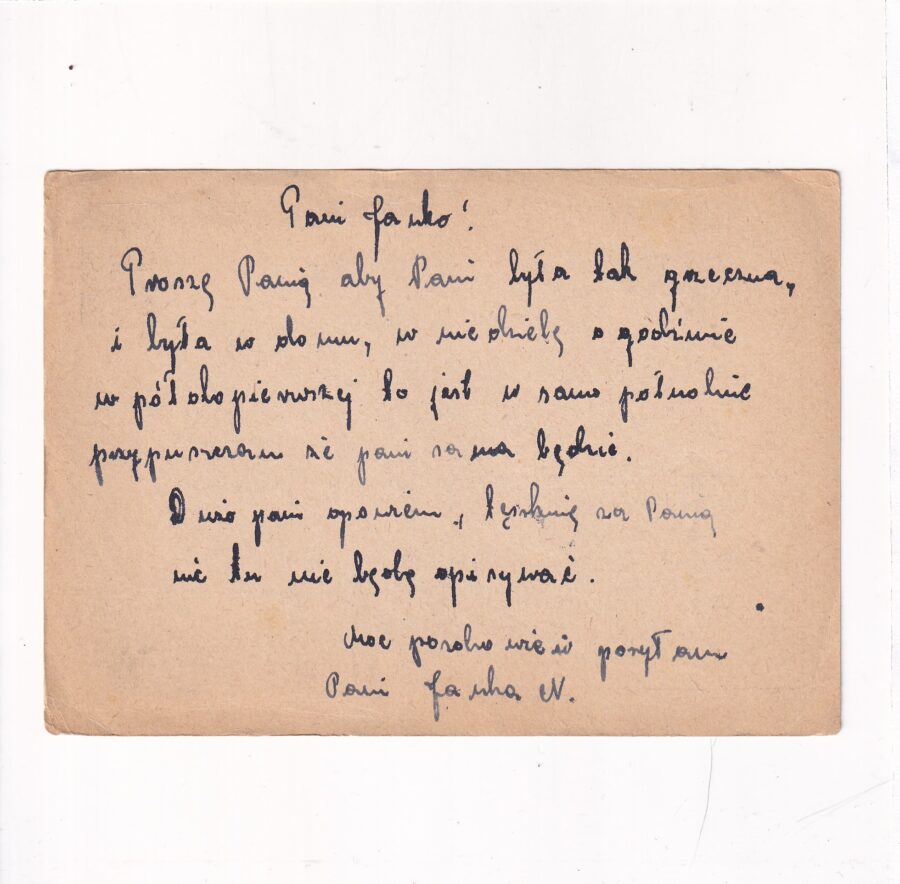 Pani Janko!
Proszę Panią aby Pani była tak grzeczna,
i była w domu, w niedzielę o godzinie
w pół do pierwszej to jest w samo południe
przypuszczam że pani sama będzie.
Dużo pani opowiem, tęsknię za Panią
nic tu nie będę opisywać.
Moc pozdrowień posyłam
Pani Janka N.